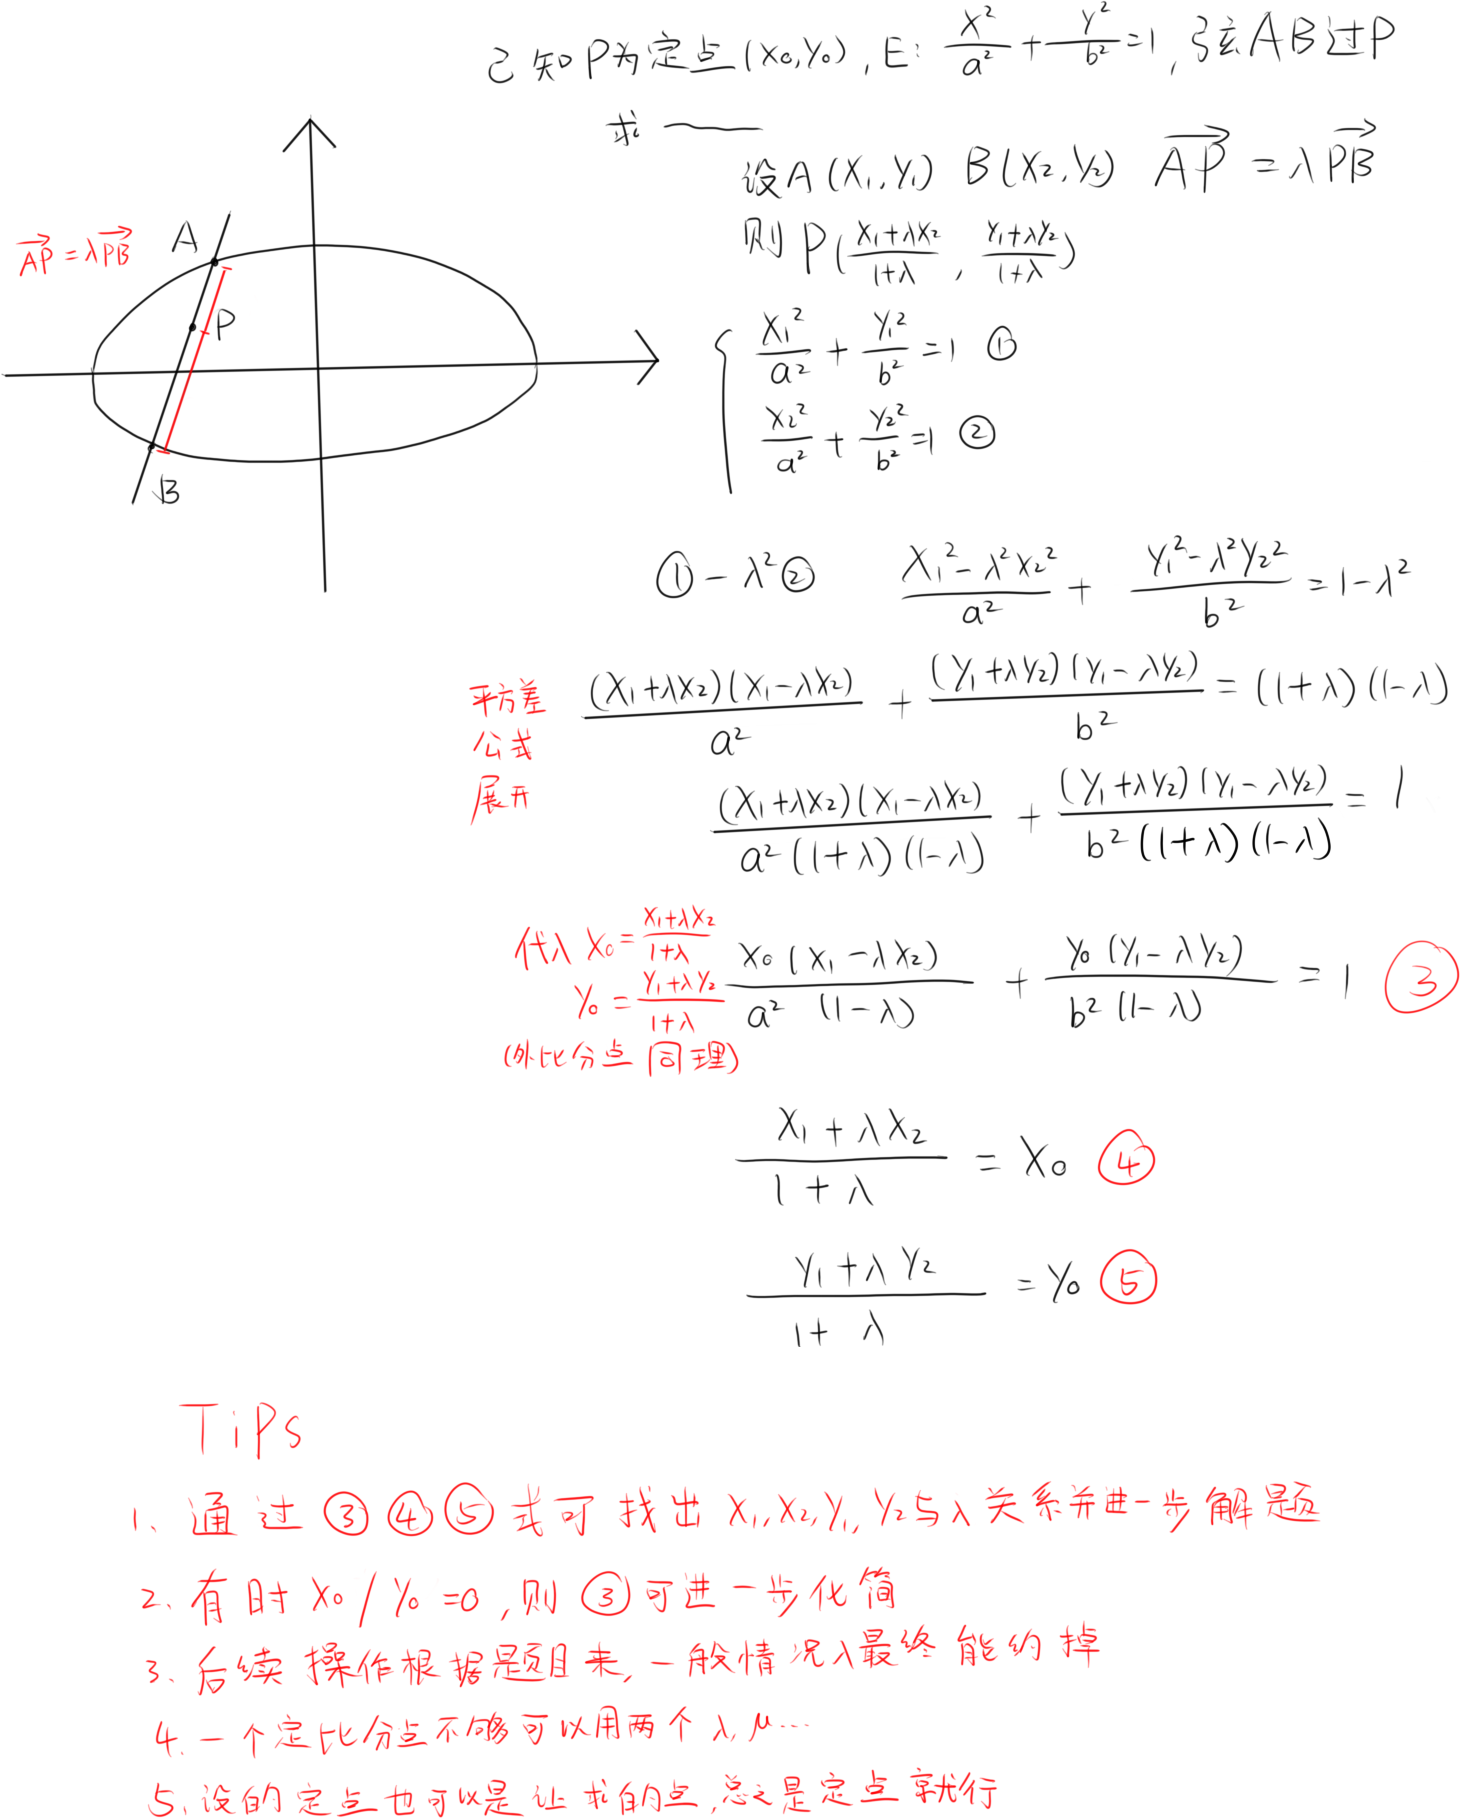 已知P为定点(x₀,y₀),E: x²/a² + y²/b² =1,弦AB过P
求
设A(x₁,y₁) B(x₂,y₂) AP→ = λPB→
则P((x₁+λx₂)/(1+λ), (y₁+λy₂)/(1+λ))
AP→ = λPB→
A
P
B
x₁²/a² + y₁²/b² =1 ①
x₂²/a² + y₂²/b² =1 ②
①-λ²② (x₁²-λ²x₂²)/a² + (y₁²-λ²y₂²)/b² = 1-λ²
平方差
公式
展开
(x₁+λx₂)(x₁-λx₂)/a² + (y₁+λy₂)(y₁-λy₂)/b² = (1+λ)(1-λ)
(x₁+λx₂)(x₁-λx₂)/a²(1+λ)(1-λ) + (y₁+λy₂)(y₁-λy₂)/b²(1+λ)(1-λ) = 1
代入 x₀=(x₁+λx₂)/(1+λ)
y₀=(y₁+λy₂)/(1+λ)
(外比分点同理)
x₀(x₁-λx₂)/a²(1-λ) + y₀(y₁-λy₂)/b²(1-λ) = 1 ③
(x₁+λx₂)/(1+λ) = x₀ ④
(y₁+λy₂)/(1+λ) = y₀ ⑤
TiPs
1、通过③④⑤式可找出x₁,x₂,y₁,y₂与λ关系并进一步解题
2、有时x₀/y₀=0,则③可进一步化简
3、后续操作根据题目来,一般情况λ最终能约掉
4.一个定比分点不够可以用两个λ,μ...
5、设的定点也可以是让求的点,总之是定点就行